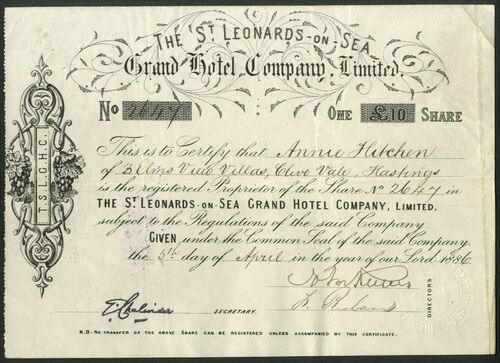 THE ST LEONARDS-ON-SEA
Grand Hotel Company, Limited.
No 2647
ONE £10 SHARE
T.S.L.G.H.C.
This is to Certify that Annie Hitchen
of 3 Elms View Villas, Clive Vale, Hastings
is the registered Proprietor of the Share No 2647 in
THE ST LEONARDS-ON-SEA GRAND HOTEL COMPANY, LIMITED,
subject to the Regulations of the said Company
GIVEN under the Common Seal of the said Company
the 5th day of April in the year of our Lord 1886
SECRETARY.
DIRECTORS
N.B-NO TRANSFER OF THE ABOVE SHARE CAN BE REGISTERED UNLESS ACCOMPANIED BY THIS CERTIFICATE.